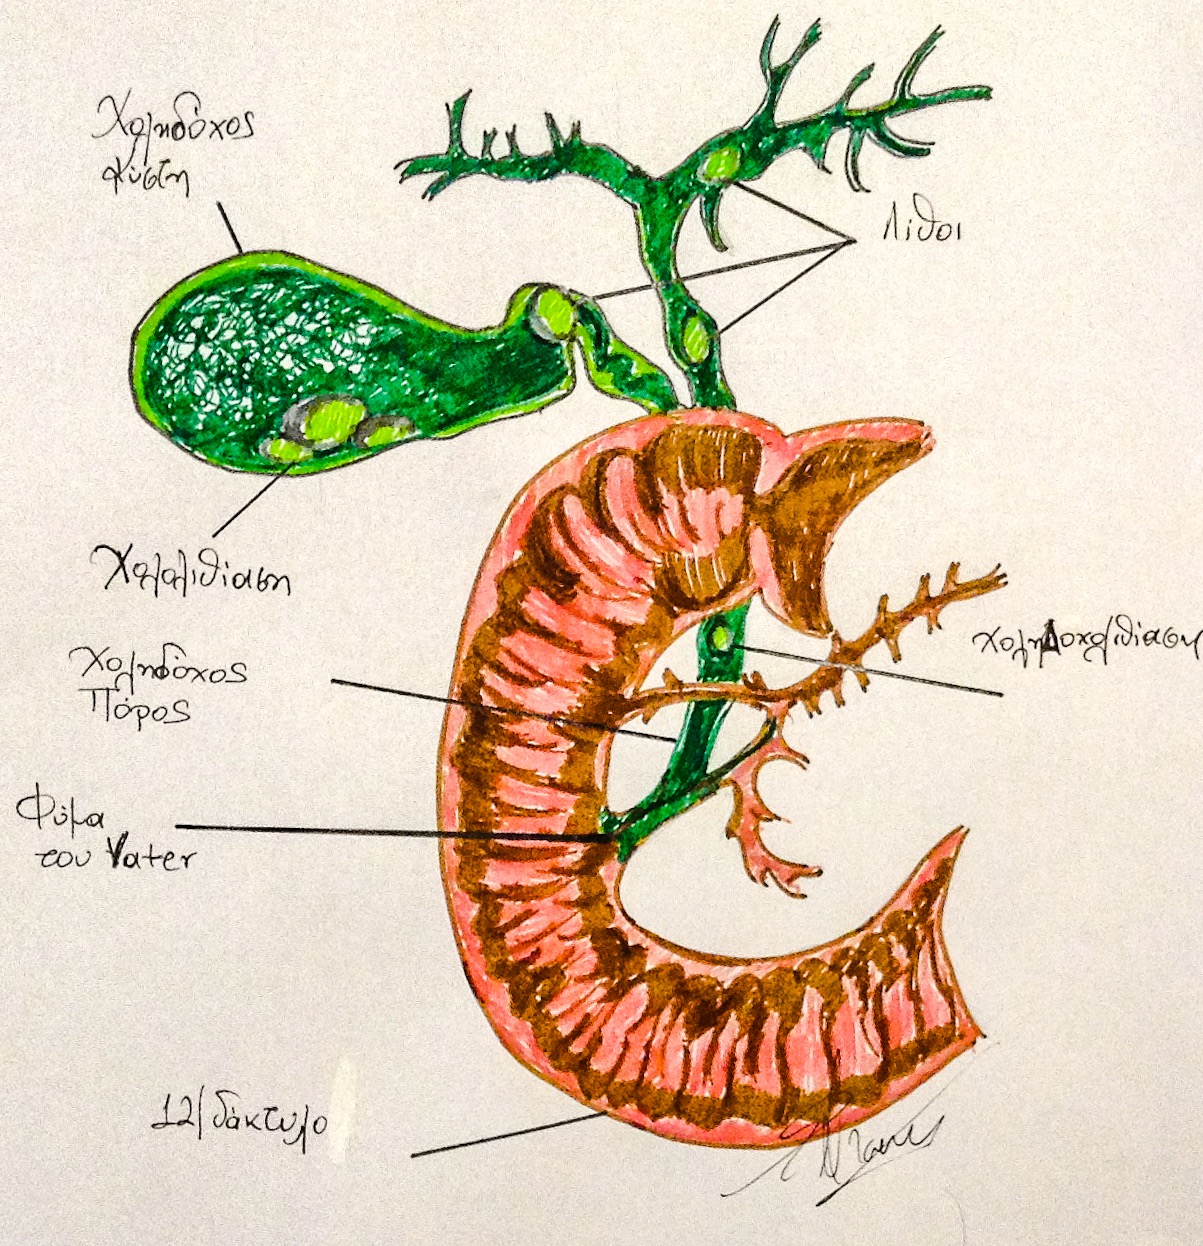 Χοληδόχος
κύστη
Λίθοι
Χολολιθίαση
Χοληδοχολιθίαση
Χοληδόχος
Πόρος
Φύμα
του Vater
12/δάκτυλο